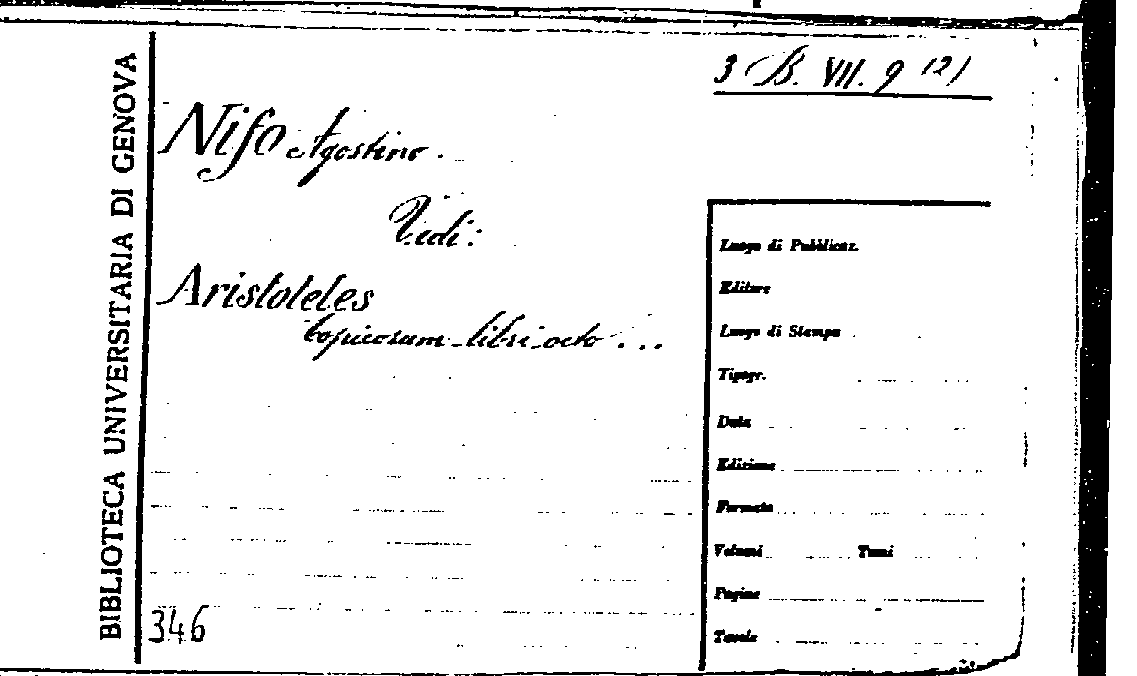 BIBLIOTECA UNIVERSITARIA DI GENOVA
3 B. VII. 9 (2)
Nifo Agostino.
Vidi:
Aristoteles
topicorum libri octo ...
346
Luogo di Pubblicaz.
Editore
Luogo di Stampa
Tipogr.
Data
Edizione
Formato
Volumi Tomi
Pagine
Tavole